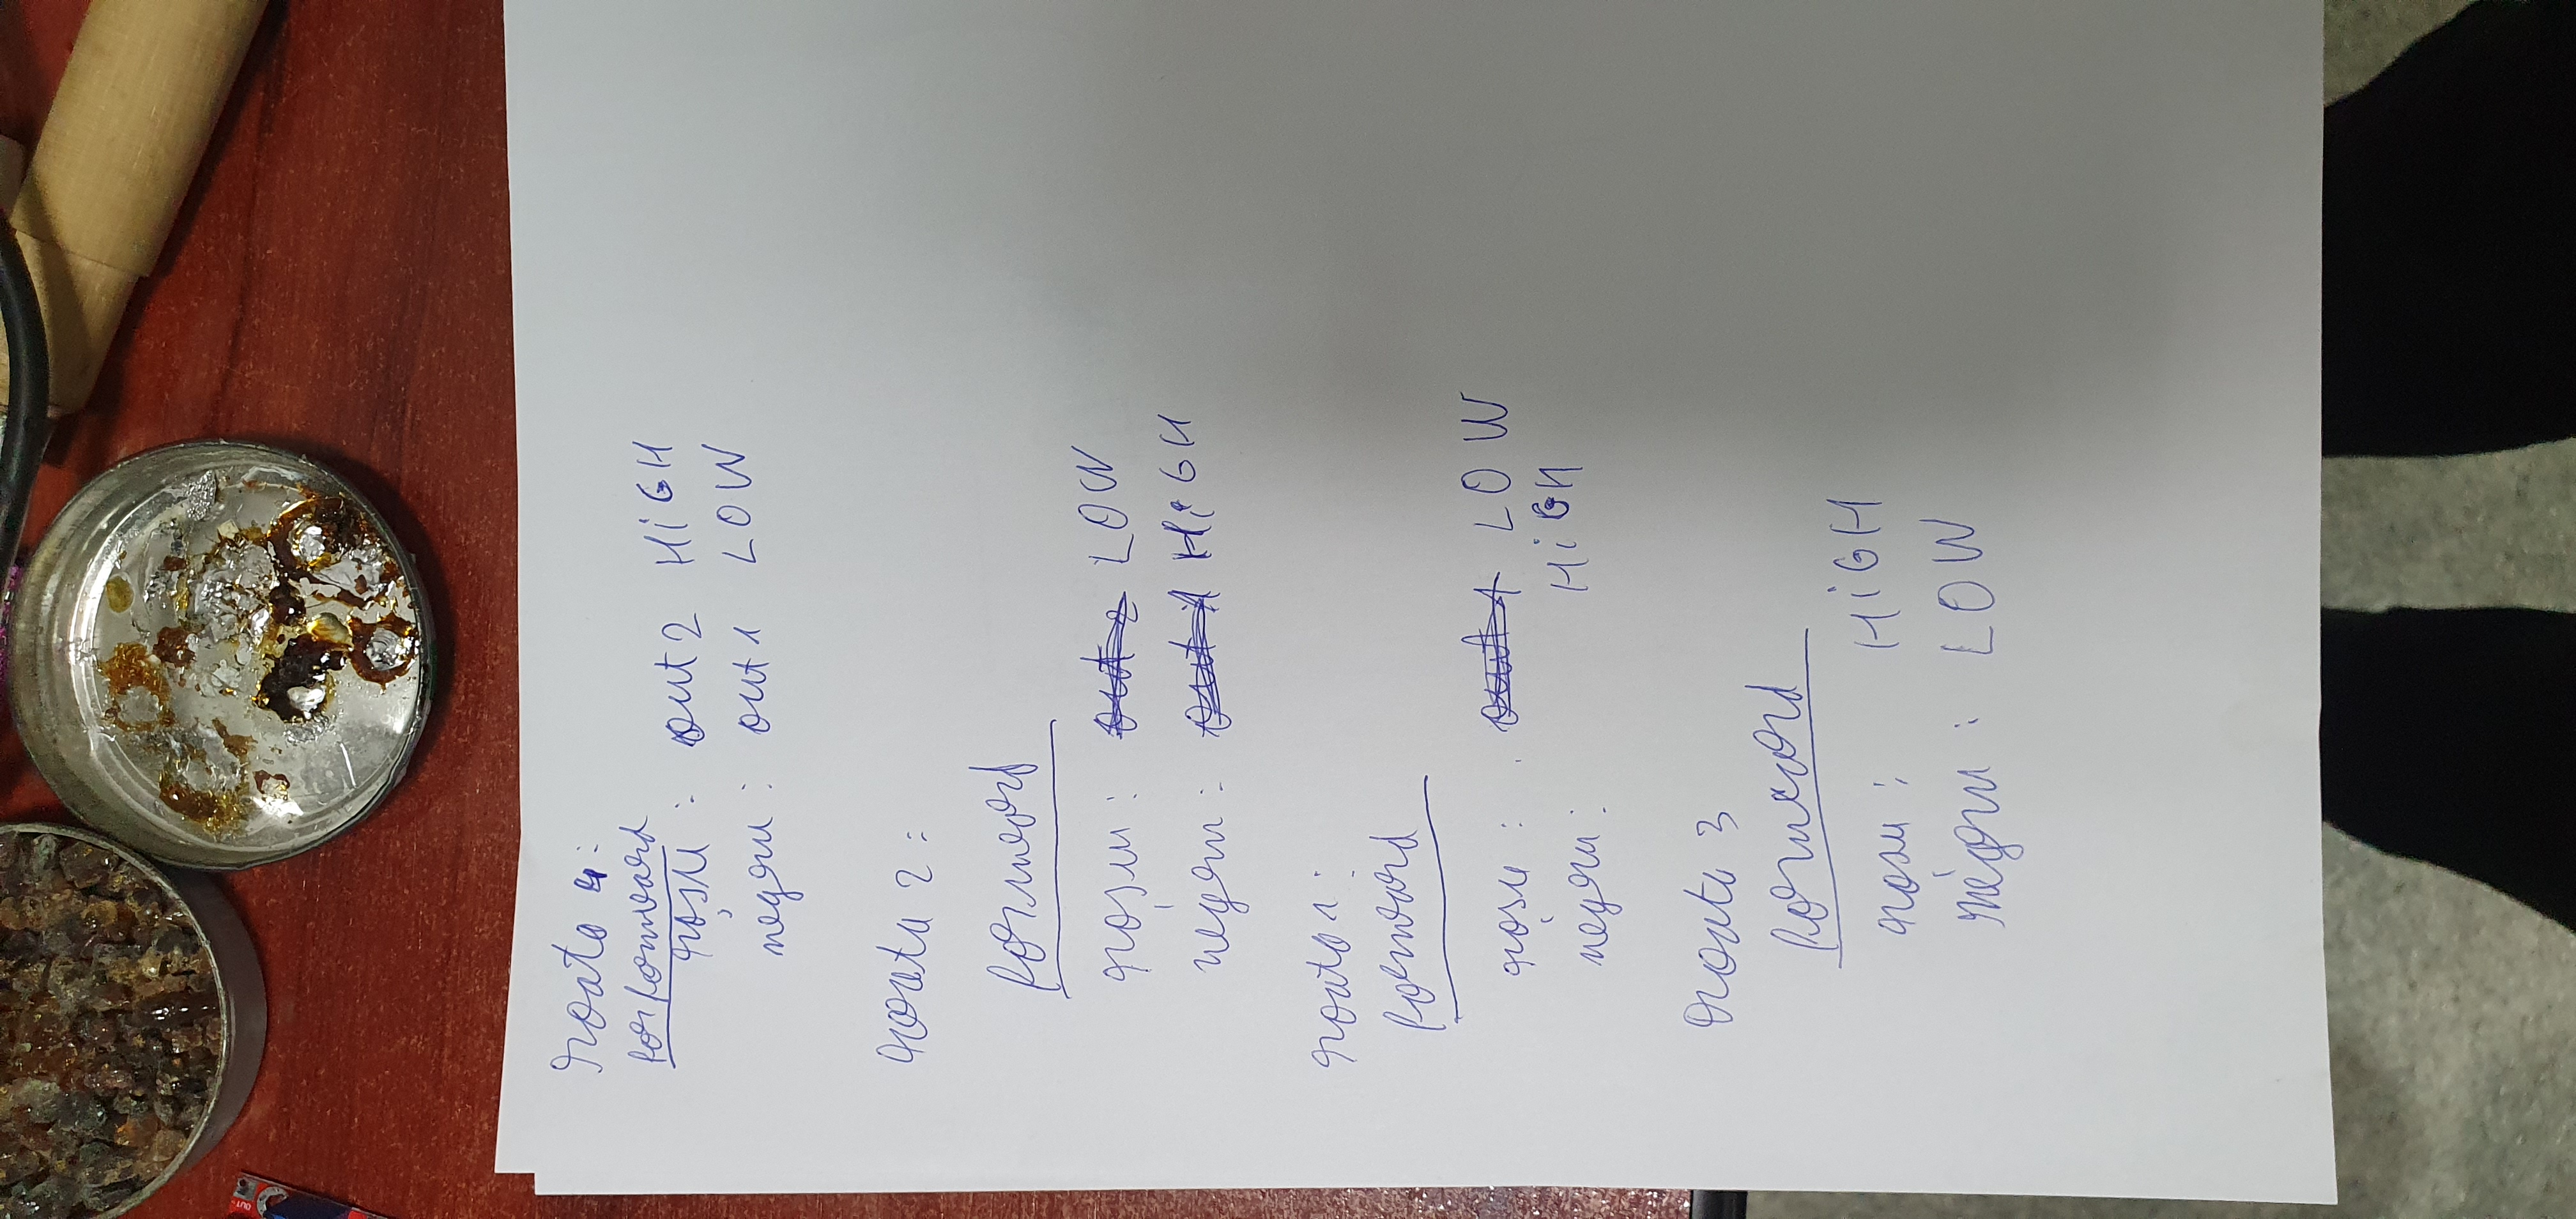 OUT
roata 4:
forforward
roșu : out 2 HiGH
negru : out 1 LOW
roata 2 :
forward
roșu : out 2 LOW
negru : out 1 HiGH
roata 1 :
forward
roșu : out 1 LOW
negru : HiGH
roata 3
forward
roșu : HiGH
negru : LOW